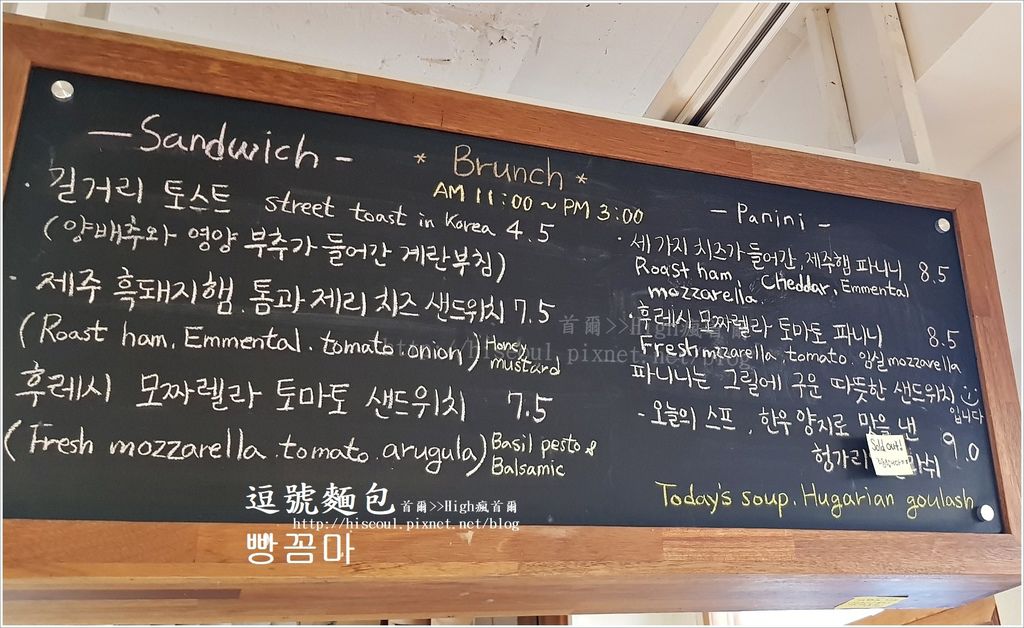 — Sandwich -
· 길거리 토스트 street toast in Korea 4.5
(양배추와 영양 부추가 들어간 계란부침)
· 제주 흑돼지햄, 톰과제리 치즈 샌드위치 7.5
(Roast ham, Emmental. tomato. onion) Honey mustard
후레시 모짜렐라 토마토 샌드위치 7.5
(Fresh mozzarella. tomato. arugula) Basil pesto & Balsamic
* Brunch *
AM 11:00 ~ PM 3:00
- Panini -
· 세가지 치즈가 들어간, 제주햄 파니니 8.5
Roast ham, Cheddar, Emmental
mozzarella.
· 후레시 모짜렐라 토마토 파니니 8.5
Fresh mzzarella, tomato. 임실 mozzarella
파니니는 그릴에 구운 따뜻한 샌드위치
입니다
- 오늘의 스프, 한우 양지로 맛을 낸
헝가리 9.0
Sold out!
Today's soup. Hugarian goulash
首爾>>High瘋首爾
http://hiseoul.pixnet.net/blog
逗號麵包 首爾>>High瘋首爾
http://hiseoul.pixnet.net/blog
빵꼼마